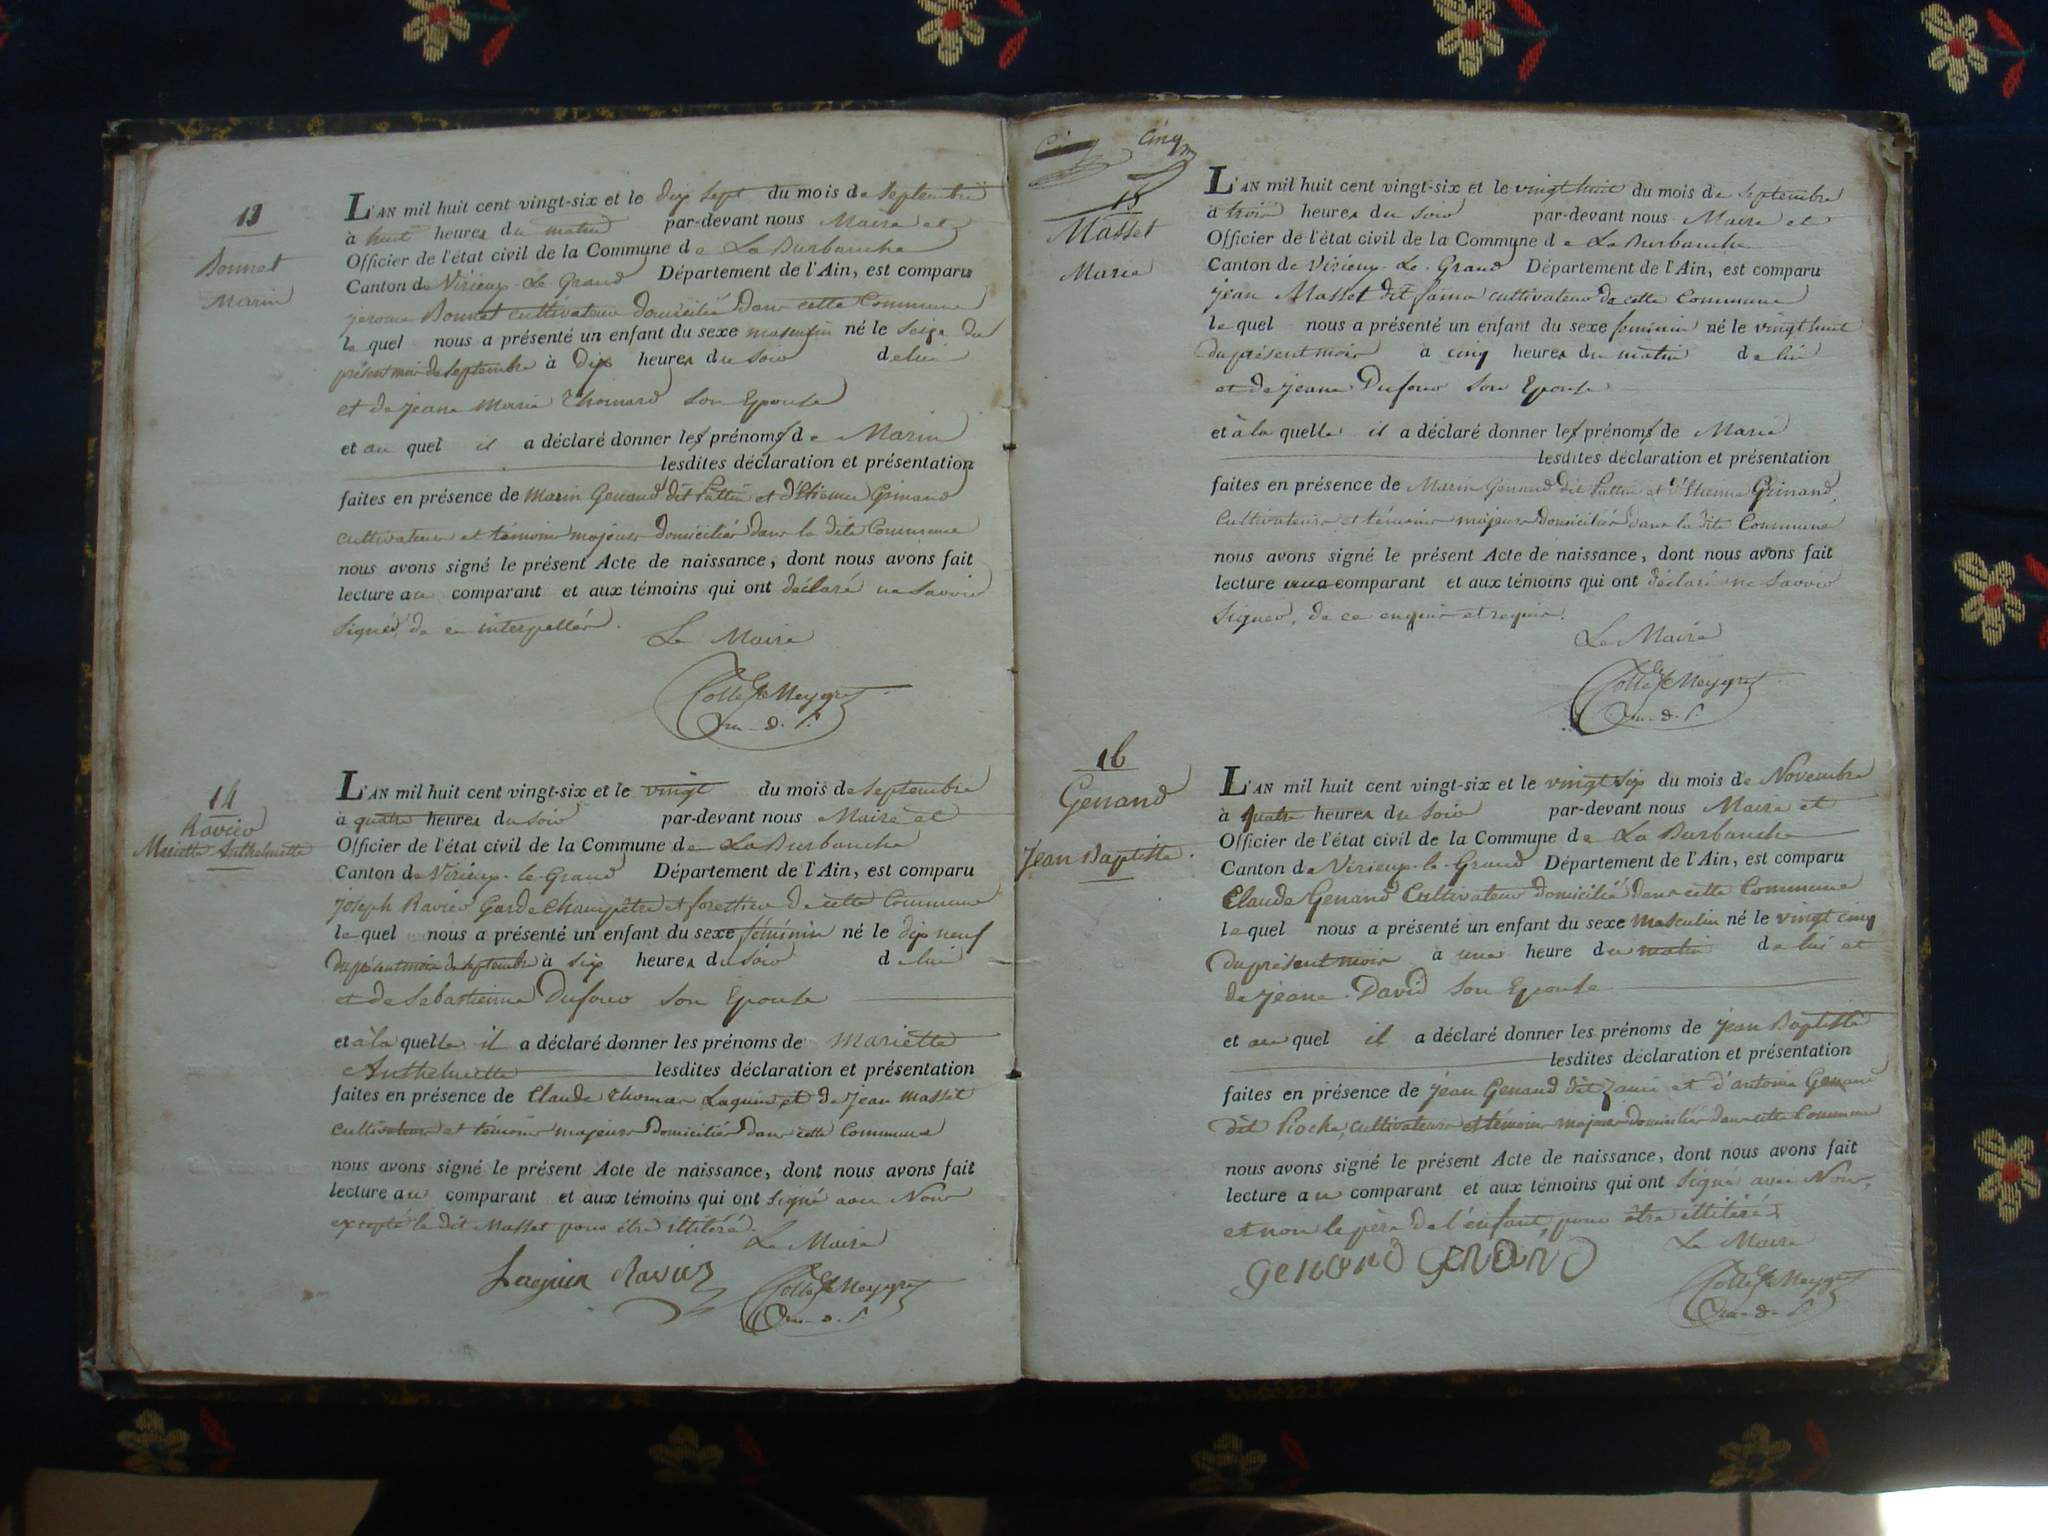 13
Bonnet
Marin
L'AN mil huit cent vingt-six et le dix sept du mois de septembre
à huit heures du matin par-devant nous Maire et
Officier de l'état civil de la Commune de La Burbanche
Canton de Virieux-Le-Grand Département de l'Ain, est comparu
jerome Bonnet cultivateur domicilié dans cette Commune
le quel nous a présenté un enfant du sexe masculin né le seize du
présent mois de septembre à dix heures du soir de lui
et de jeane marie Thomard son Epouse
et au quel il a déclaré donner les prénoms de Marin
lesdites déclaration et présentation
faites en présence de Marin Genand dit Pattin et d'Etienne Grinand
cultivateurs et témoins majeurs domiciliés dans la dite Commune
nous avons signé le présent Acte de naissance, dont nous avons fait
lecture au comparant et aux témoins qui ont déclaré ne savoir
signer, de ce interpellés.
Le Maire
14
Ravier
Mariette Anthelmette
L'AN mil huit cent vingt-six et le vingt du mois de septembre
à quatre heures du soir par-devant nous Maire et
Officier de l'état civil de la Commune de La Burbanche
Canton de Virieux-le-Grand Département de l'Ain, est comparu
joseph Ravier Garde Champêtre et forestier de cette Commune
le quel nous a présenté un enfant du sexe féminin né le dix neuf
du présent mois de septembre à six heures du soir de lui
et de Sebastienne Dufour son Epouse
et à la quelle il a déclaré donner les prénoms de Mariette
Anthelmette lesdites déclaration et présentation
faites en présence de Claude Thomas Laguin et de Jean Masset
cultivateurs et témoins majeurs domiciliés dans cette Commune
nous avons signé le présent Acte de naissance, dont nous avons fait
lecture au comparant et aux témoins qui ont signé avec Nous
excepté le dit Masset pour être illitéré.
Le Maire
Laguin Ravier
cinq
15
Masset
Marie
L'AN mil huit cent vingt-six et le vingt huit du mois de septembre
à trois heures du soir par-devant nous Maire et
Officier de l'état civil de la Commune de La Burbanche
Canton de Virieux-Le-Grand Département de l'Ain, est comparu
jean Masset dit cultivateur de cette Commune
le quel nous a présenté un enfant du sexe feminin né le vingt huit
du présent mois à cinq heures du matin de lui
et de jeane Dufour son Epouse
et à la quelle il a déclaré donner les prénoms de Marie
lesdites déclaration et présentation
faites en présence de Marin Genand dit Pattin et d'Etienne Grinand,
cultivateurs et témoins majeurs domiciliés dans la dite Commune
nous avons signé le présent Acte de naissance, dont nous avons fait
lecture comparant et aux témoins qui ont déclaré ne savoir
signer, de ce enquis et requis.
Le Maire
16
Genand
Jean Baptiste.
L'AN mil huit cent vingt-six et le vingt six du mois de Novembre
à quatre heures du soir par-devant nous Maire et
Officier de l'état civil de la Commune de La Burbanche
Canton de Virieux-le-Grand Département de l'Ain, est comparu
Claude Genand Cultivateur domicilié dans cette Commune
le quel nous a présenté un enfant du sexe masculin né le vingt cinq
du présent mois à une heure du matin de lui et
de jeane David son Epouse
et au quel il a déclaré donner les prénoms de jean Baptiste
lesdites déclaration et présentation
faites en présence de jean Genand dit et d'antoine Genand
dit Pioche, cultivateurs et témoins majeurs domiciliés dans cette Commune
nous avons signé le présent Acte de naissance, dont nous avons fait
lecture au comparant et aux témoins qui ont signé avec Nous,
et non le père de l'enfant, pour être illitéré.
Le Maire
Genand Genand